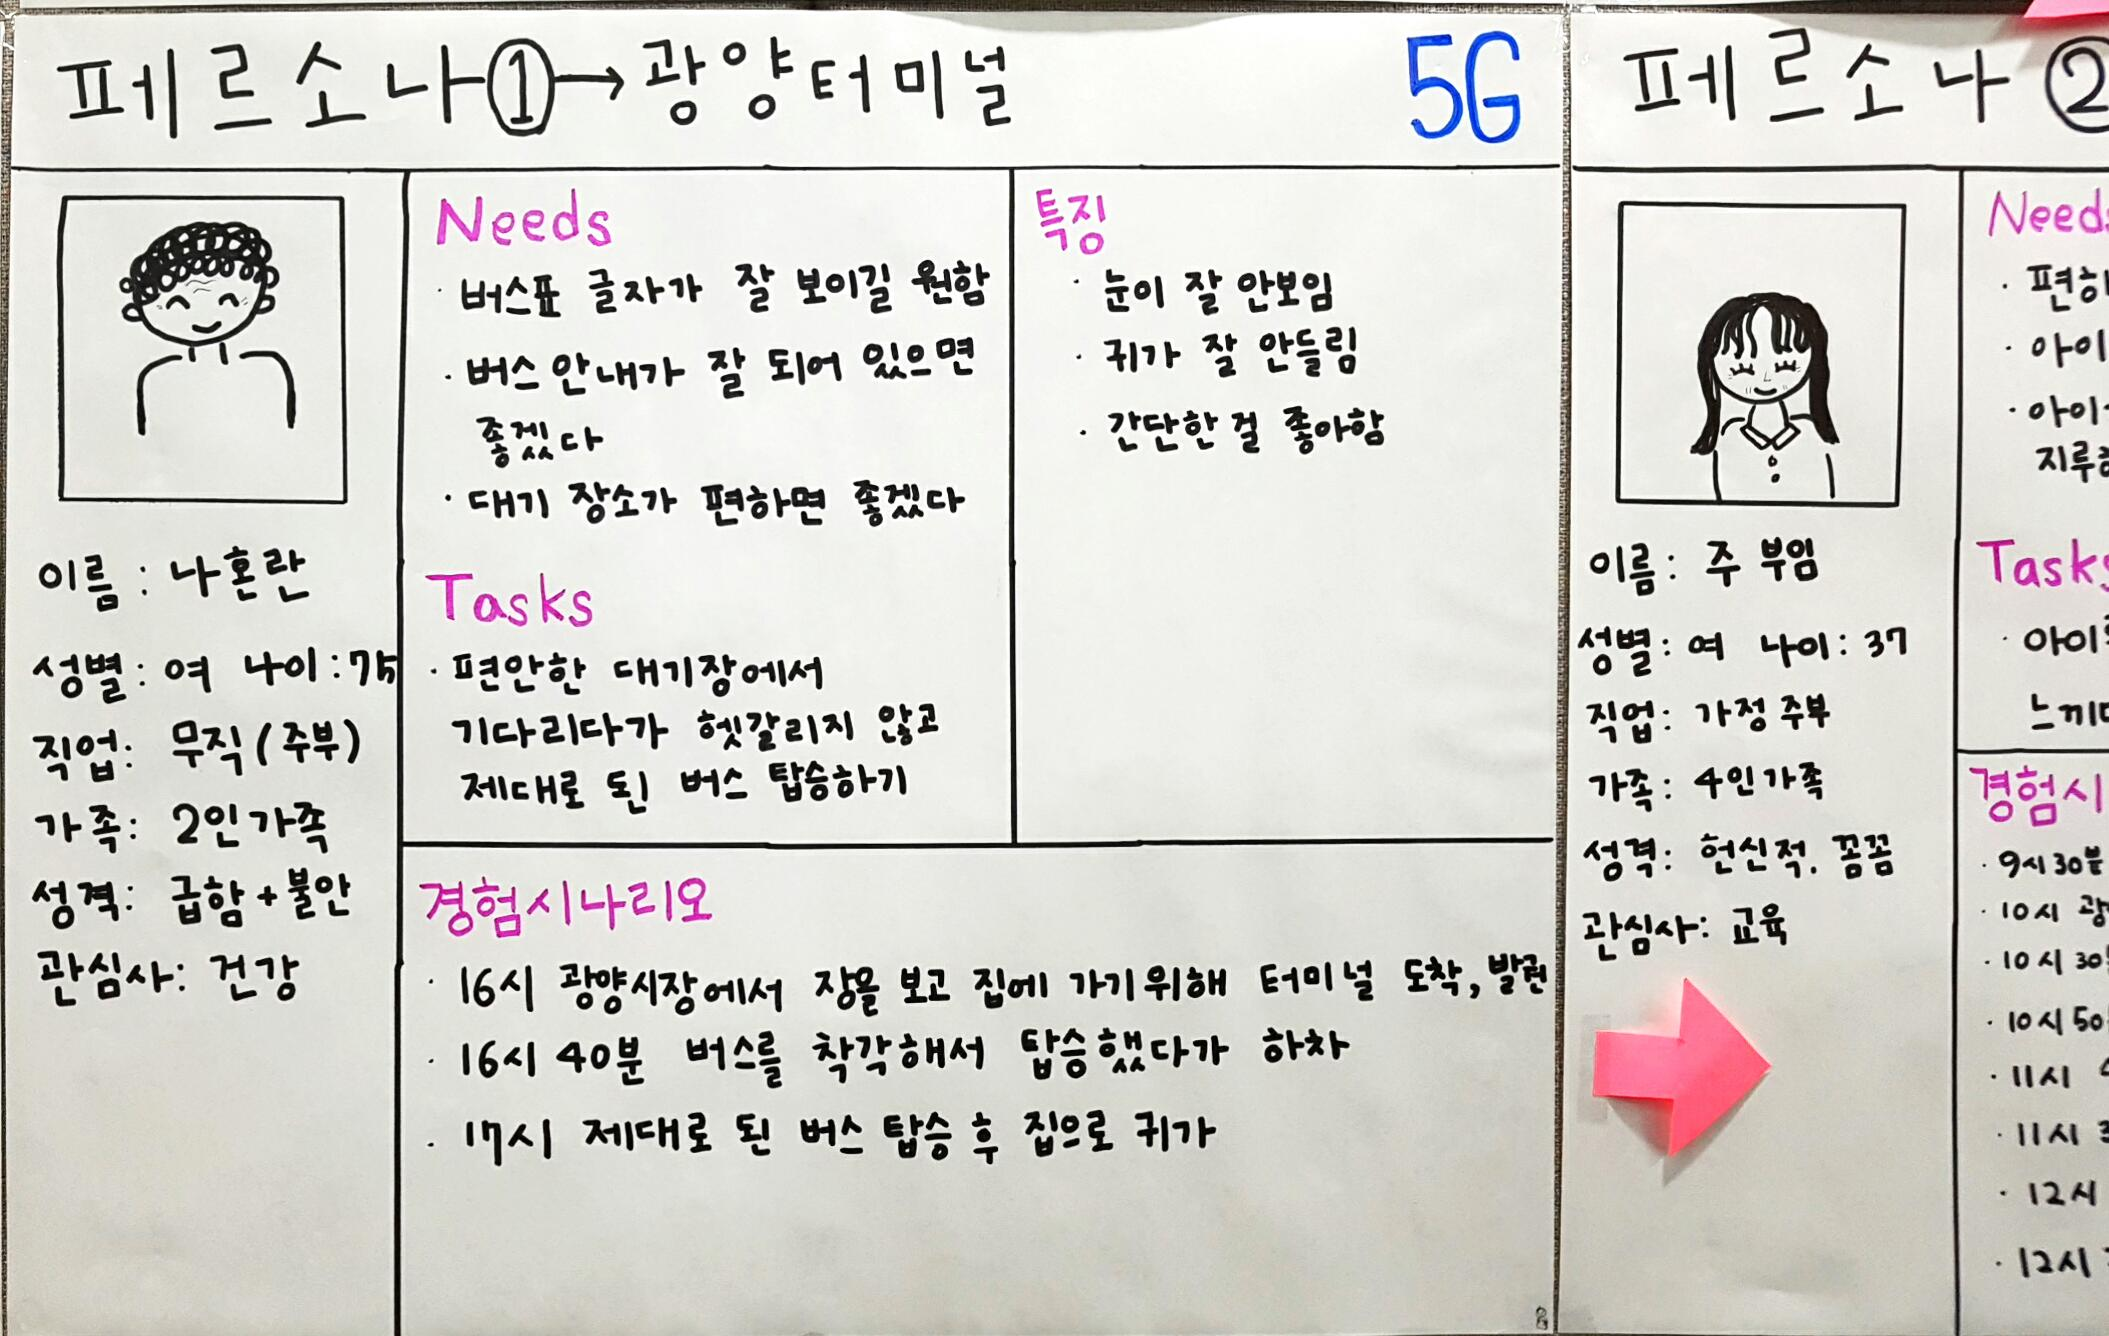 페르소나 ① → 광양터미널
5G
이름 : 나혼란
성별: 여 나이: 75
직업: 무직 (주부)
가족: 2인가족
성격: 급함 + 불안
관심사: 건강
Needs
· 버스표 글자가 잘 보이길 원함
· 버스 안내가 잘 되어 있으면
좋겠다
· 대기 장소가 편하면 좋겠다
Tasks
· 편안한 대기장에서
기다리다가 헷갈리지 않고
제대로 된 버스 탑승하기
특징
· 눈이 잘 안보임
· 귀가 잘 안들림
· 간단한 걸 좋아함
경험시나리오
· 16시 광양시장에서 장을 보고 집에 가기위해 터미널 도착, 발권
· 16시 40분 버스를 착각해서 탑승했다가 하차
· 17시 제대로 된 버스 탑승 후 집으로 귀가
페르소나 ②
이름: 주 부임
성별: 여 나이: 37
직업: 가정 주부
가족: 4인가족
성격: 헌신적. 꼼꼼
관심사: 교육
Needs
· 편하
· 아이
· 아이
지루
Tasks
· 아이
느끼
경험시
· 9시 30분
· 10시 광
· 10시 30
· 10시 50
· 11시
· 11시
· 12시
· 12시